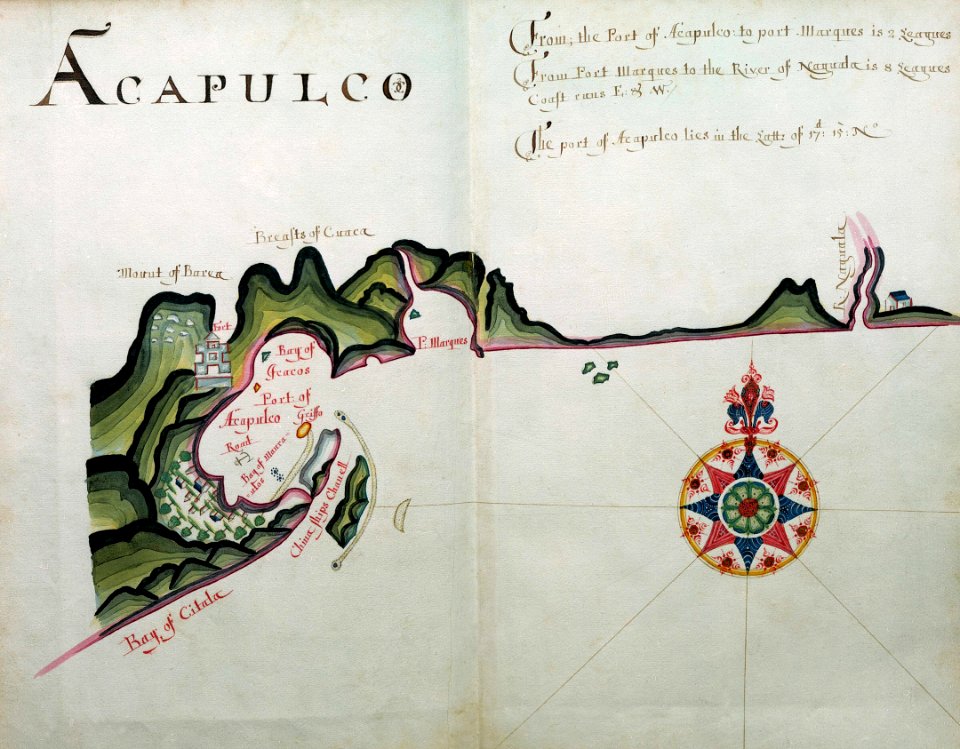 ACAPULCO
From, the Port of Acapulco: to port Marques is 2 Leagues
From Port Marques to the River of Naguala is 8 Leagues
Coast runs E: & W:
The port of Acapulco lies in the Latt: of 17d: 15: No
Breasts of Cuaca
Mount of Barea
R Naguala
Fort
P: Marques
Bay of
Acacos
Port of
Acapulco
Griffo
Road
Bay of
China ships Chanell
Bay of Citala